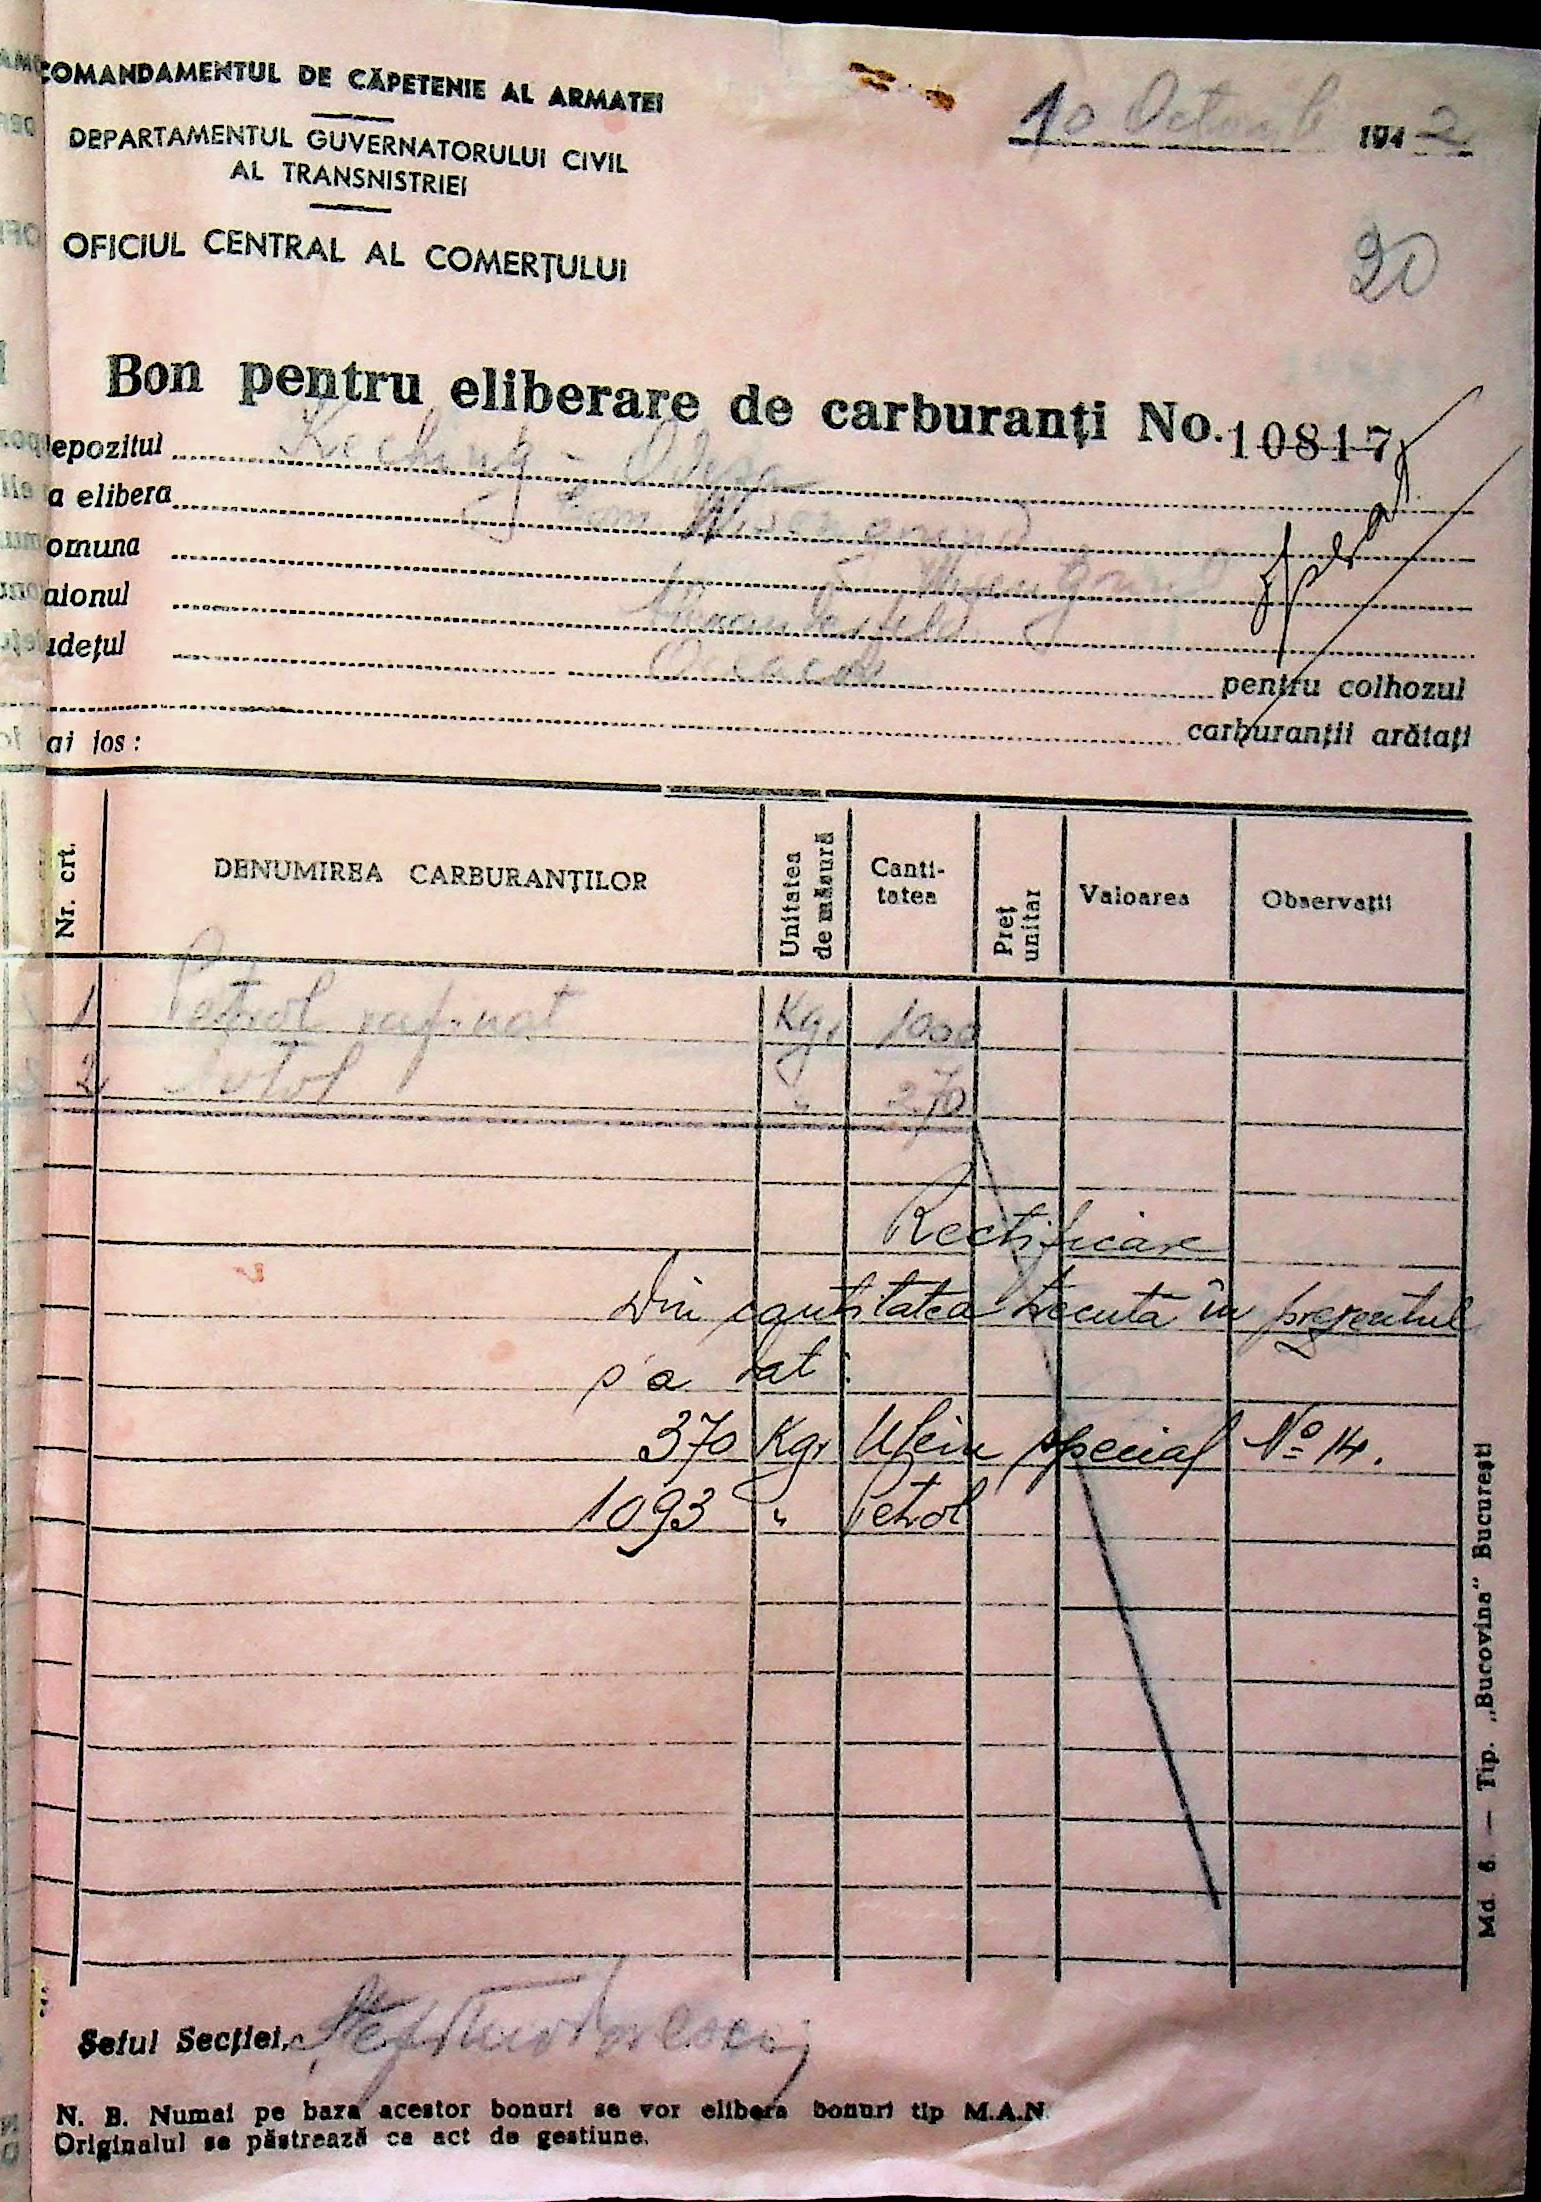 COMANDAMENTUL DE CĂPETENIE AL ARMATEI
DEPARTAMENTUL GUVERNATORULUI CIVIL
AL TRANSNISTRIEI
OFICIUL CENTRAL AL COMERŢULUI
10 Octomb 1942
20
Bon pentru eliberare de carburanţi No. 10817
epozitul Odesa
a elibera
omuna
aionul
udeţul Oceacov pentru colhozul
carburanţii arătaţi
ai jos :
Nr. crt. DENUMIREA CARBURANŢILOR Unitatea de măsură Canti-tatea Preţ unitar Valoarea Observaţii
1 Petrol rafinat Kgr 1000
2 Autol " 270
Rectificare
Din cantitatea trecută în prezentul
s'a dat :
370 Kgr Ulein special No 14.
1093 " Petrol
Md. 6. — Tip. „Bucovina" Bucureşti
Şeful Secţiei,
N. B. Numai pe baza acestor bonuri se vor elibera bonuri tip M.A.N.
Originalul se păstrează ca act de gestiune.